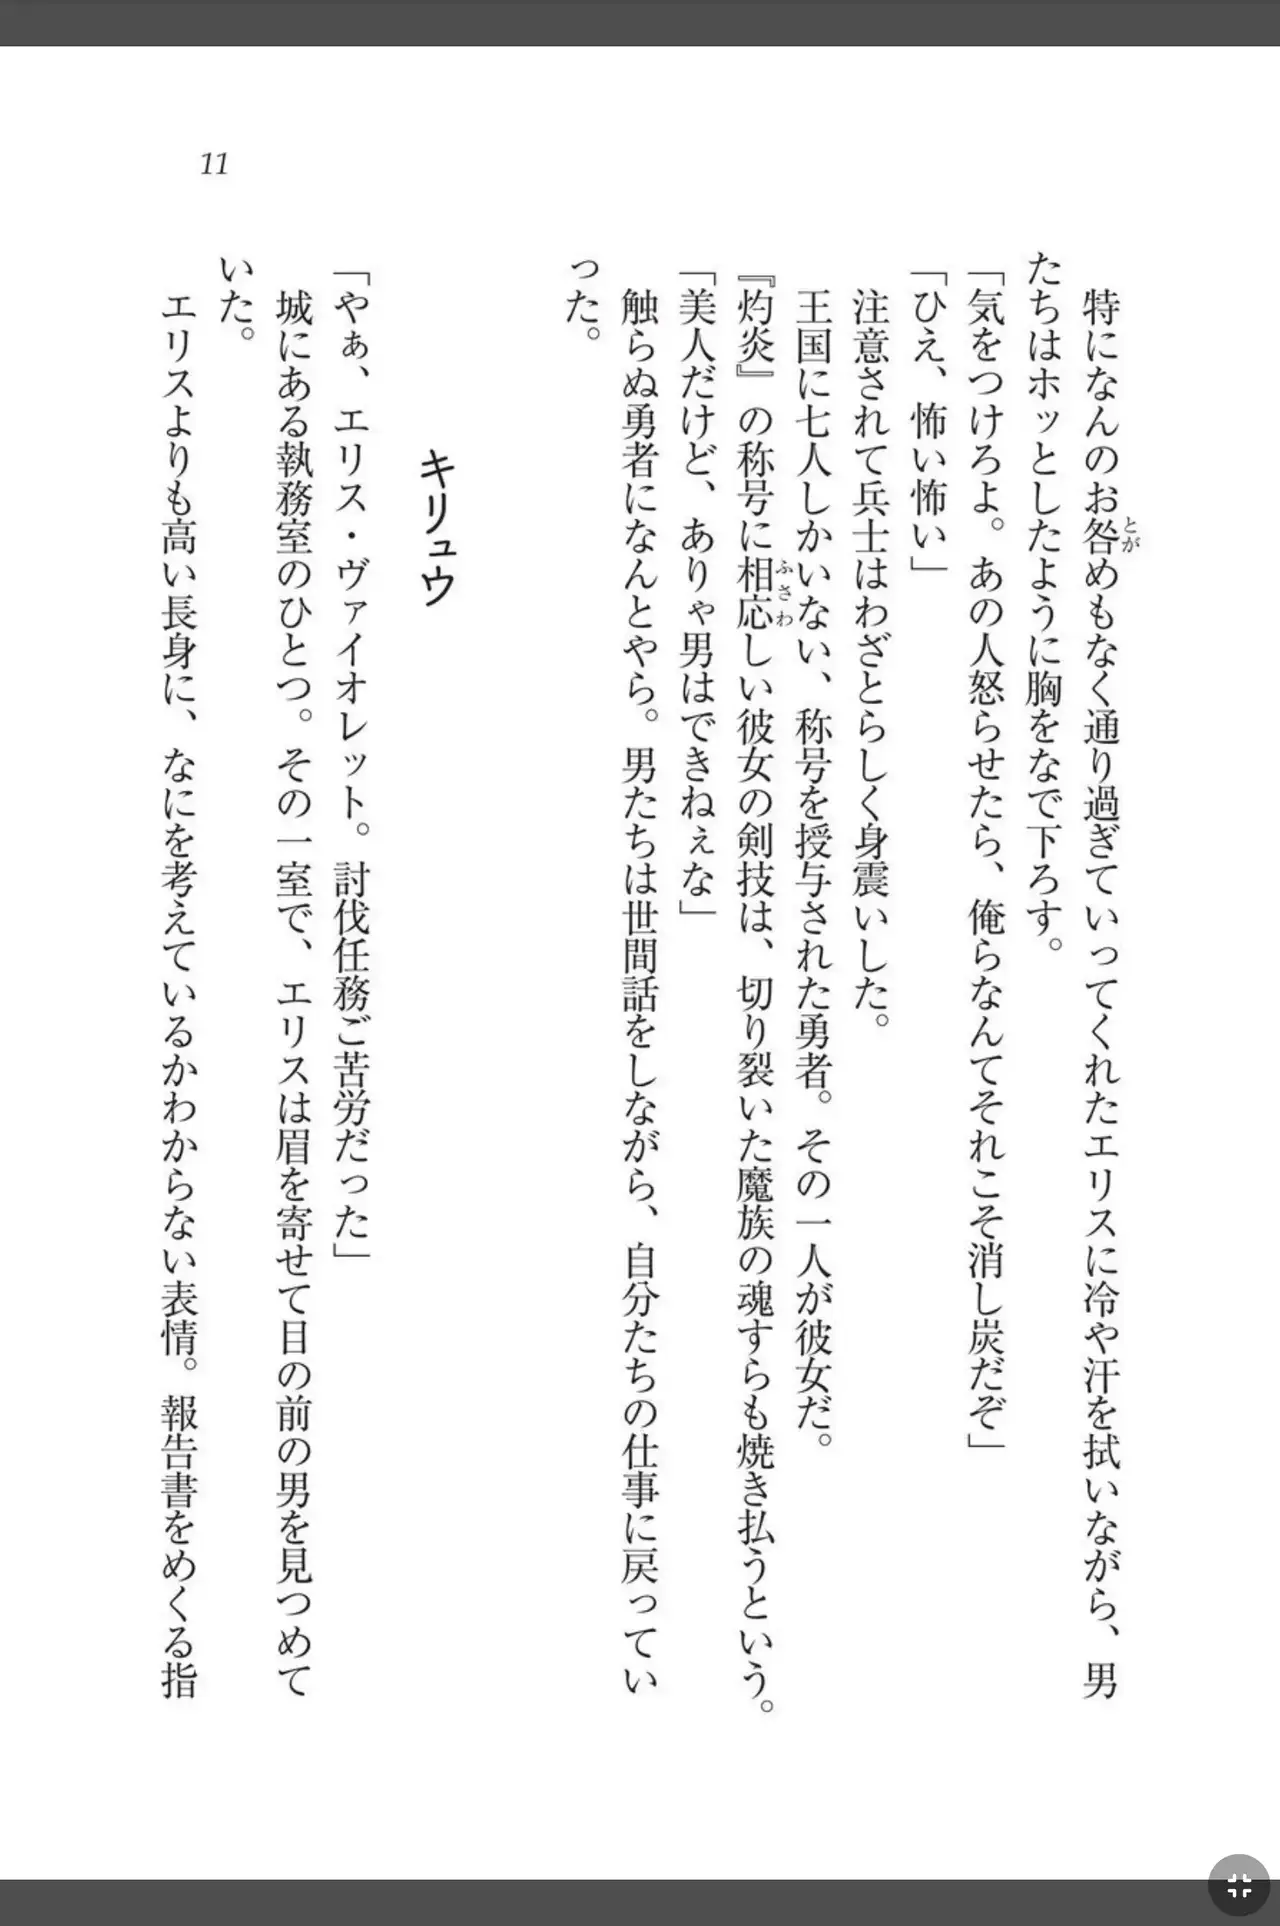 11
特になんのお咎めもなく通り過ぎていってくれたエリスに冷や汗を拭いながら、男
とが
たちはホッとしたように胸をなで下ろす。
「気をつけろよ。あの人怒らせたら、俺らなんてそれこそ消し炭だぞ」
「ひえ、怖い怖い」
注意されて兵士はわざとらしく身震いした。
王国に七人しかいない、称号を授与された勇者。その一人が彼女だ。
『灼炎』の称号に相応しい彼女の剣技は、切り裂いた魔族の魂すらも焼き払うという。
ふさわ
「美人だけど、ありゃ男はできねぇな」
触らぬ勇者になんとやら。男たちは世間話をしながら、自分たちの仕事に戻ってい
った。
キリュウ
「やぁ、エリス・ヴァイオレット。討伐任務ご苦労だった」
城にある執務室のひとつ。その一室で、エリスは眉を寄せて目の前の男を見つめて
いた。
エリスよりも高い長身に、なにを考えているかわからない表情。報告書をめくる指